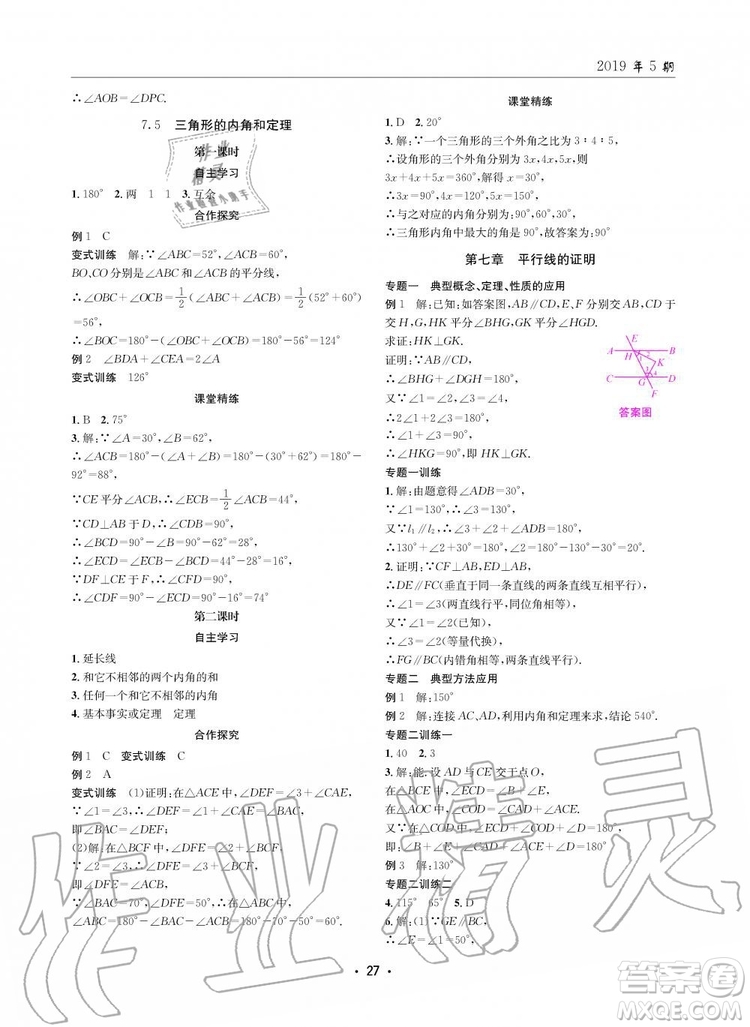 2019 年 5 期
∴∠AOB=∠DPC.
7.5 三角形的内角和定理
第一课时
自主学习
1. 180° 2. 两 1 1 3. 互余
合作探究
例 1 C
变式训练 解:∵∠ABC=52°,∠ACB=60°,
BO,CO 分别是∠ABC 和∠ACB 的平分线,
∴∠OBC+∠OCB=1/2(∠ABC+∠ACB)=1/2(52°+60°)
=56°,
∴∠BOC=180°-(∠OBC+∠OCB)=180°-56°=124°
例 2 ∠BDA+∠CEA=2∠A
变式训练 126°
课堂精练
1. B 2. 75°
3. 解:∵∠A=30°,∠B=62°,
∴∠ACB=180°-∠A-∠B=180°-30°-
62°=88°,
∵CE平分∠ACB,∴∠ECB=1/2∠ACB=44°,
∵CD⊥AB于D,∴∠CDB=90°,
∴∠BCD=90°-∠B=90°-62°=28°,
∴∠ECD=∠ECB-∠BCD=44°-28°=16°,
∵DF⊥CE于F,∴∠CFD=90°,
∴∠CDF=90°-∠ECD=90°-16°=74°
第二课时
自主学习
1. 延长线
2. 和它不相邻的两个内角的和
3. 任何一个和它不相邻的内角
4. 基本事实或定理 定理
合作探究
例 1 C 变式训练 C
例 2 A
变式训练 (1)证明:在△ACE中,∠DEF=∠3+∠CAE,
∵∠1=∠3,∴∠DEF=∠1+∠CAE=∠BAC,
即∠BAC=∠DEF;
(2)解:在△BCF中,∠DFE=∠2+∠BCF,
∵∠1=∠2=∠3,∴∠DFE=∠3+∠BCF,
即∠DFE=∠ACB,
∵∠BAC=70°,∠DFE=50°,∴在△ABC中,
∠ABC=180°-∠BAC-∠ACB=180°-70°-50°=60°.
课堂精练
1. D 2. 20°
3. 解:∵一个三角形的三个外角之比为3∶4∶5,
∴设角形的三个外角分别为3x,4x,5x,则
3x+4x+5x=360°,解得,x=30°,
∴三角形的三个外角分别为90°,120°,150°,
∴与之对应的内角分别为:90°,60°,30°,
∴三角形内角中最大的角是90°,故答案为:90°
第七章 平行线的证明
专题一 典型概念、定理、性质的应用
例 1 解:已知:如答案图,AB∥CD,E、F分别交于
交H,G,HK平分∠BHG,GK平分∠HGD.
求证:HK⊥GK.
证明:∵AB∥CD,
∴∠BHG+∠DGH=180°,
又∵∠1=∠2,∠3=∠4,
∴2∠1+2∠3=180°,
∴∠1+∠3=90°,
∴∠HKG=90°,即HK⊥GK.
E
A B
H 1 2
K
3 4
C D
G
F
答案图
专题一训练
1. 解:由题意得∠ADB=30°,
∵∠1=130°,∴∠3=130°,
又∵l₁∥l₂,∴∠3+∠2+∠ADB=180°,
∴130°+∠2+30°=180°,∴∠2=20°
2. 证明:∵CF⊥AB,ED⊥AB,
∴DE∥FC(垂直于同一条直线的两条直线互相平行)
∴∠1=∠3(两直线平行,同位角相等)
又∵∠2=∠1(已知)
∴∠3=∠2(等量代换)
∴FG∥BC(内错角相等,两直线平行)
专题二 典型方法应用
例 1 解:150°
例 2 解:连接AC、AD,利用内角和定理求解,结论540°.
专题二训练一
1. 40 2. 3
3. 解:能,设AD与CE交于点O,
在△DOE中,∠DOE+∠D+∠E=180°,
∵∠DOE=∠C+∠2,
在△AOC中,∠AOE=∠C+∠DAC,
又∵在△DOE中,∠AOE+∠D+∠E=180°,
即:∠DAC+∠C+∠D+∠E=180°
例 3 解:130°
专题二训练二
4. 115° 65° 5. D
6. 解:(1)∵GE∥BC,
∴∠E=∠1=50°,
· 27 ·
作业精灵
答案圈
MXQE.COM